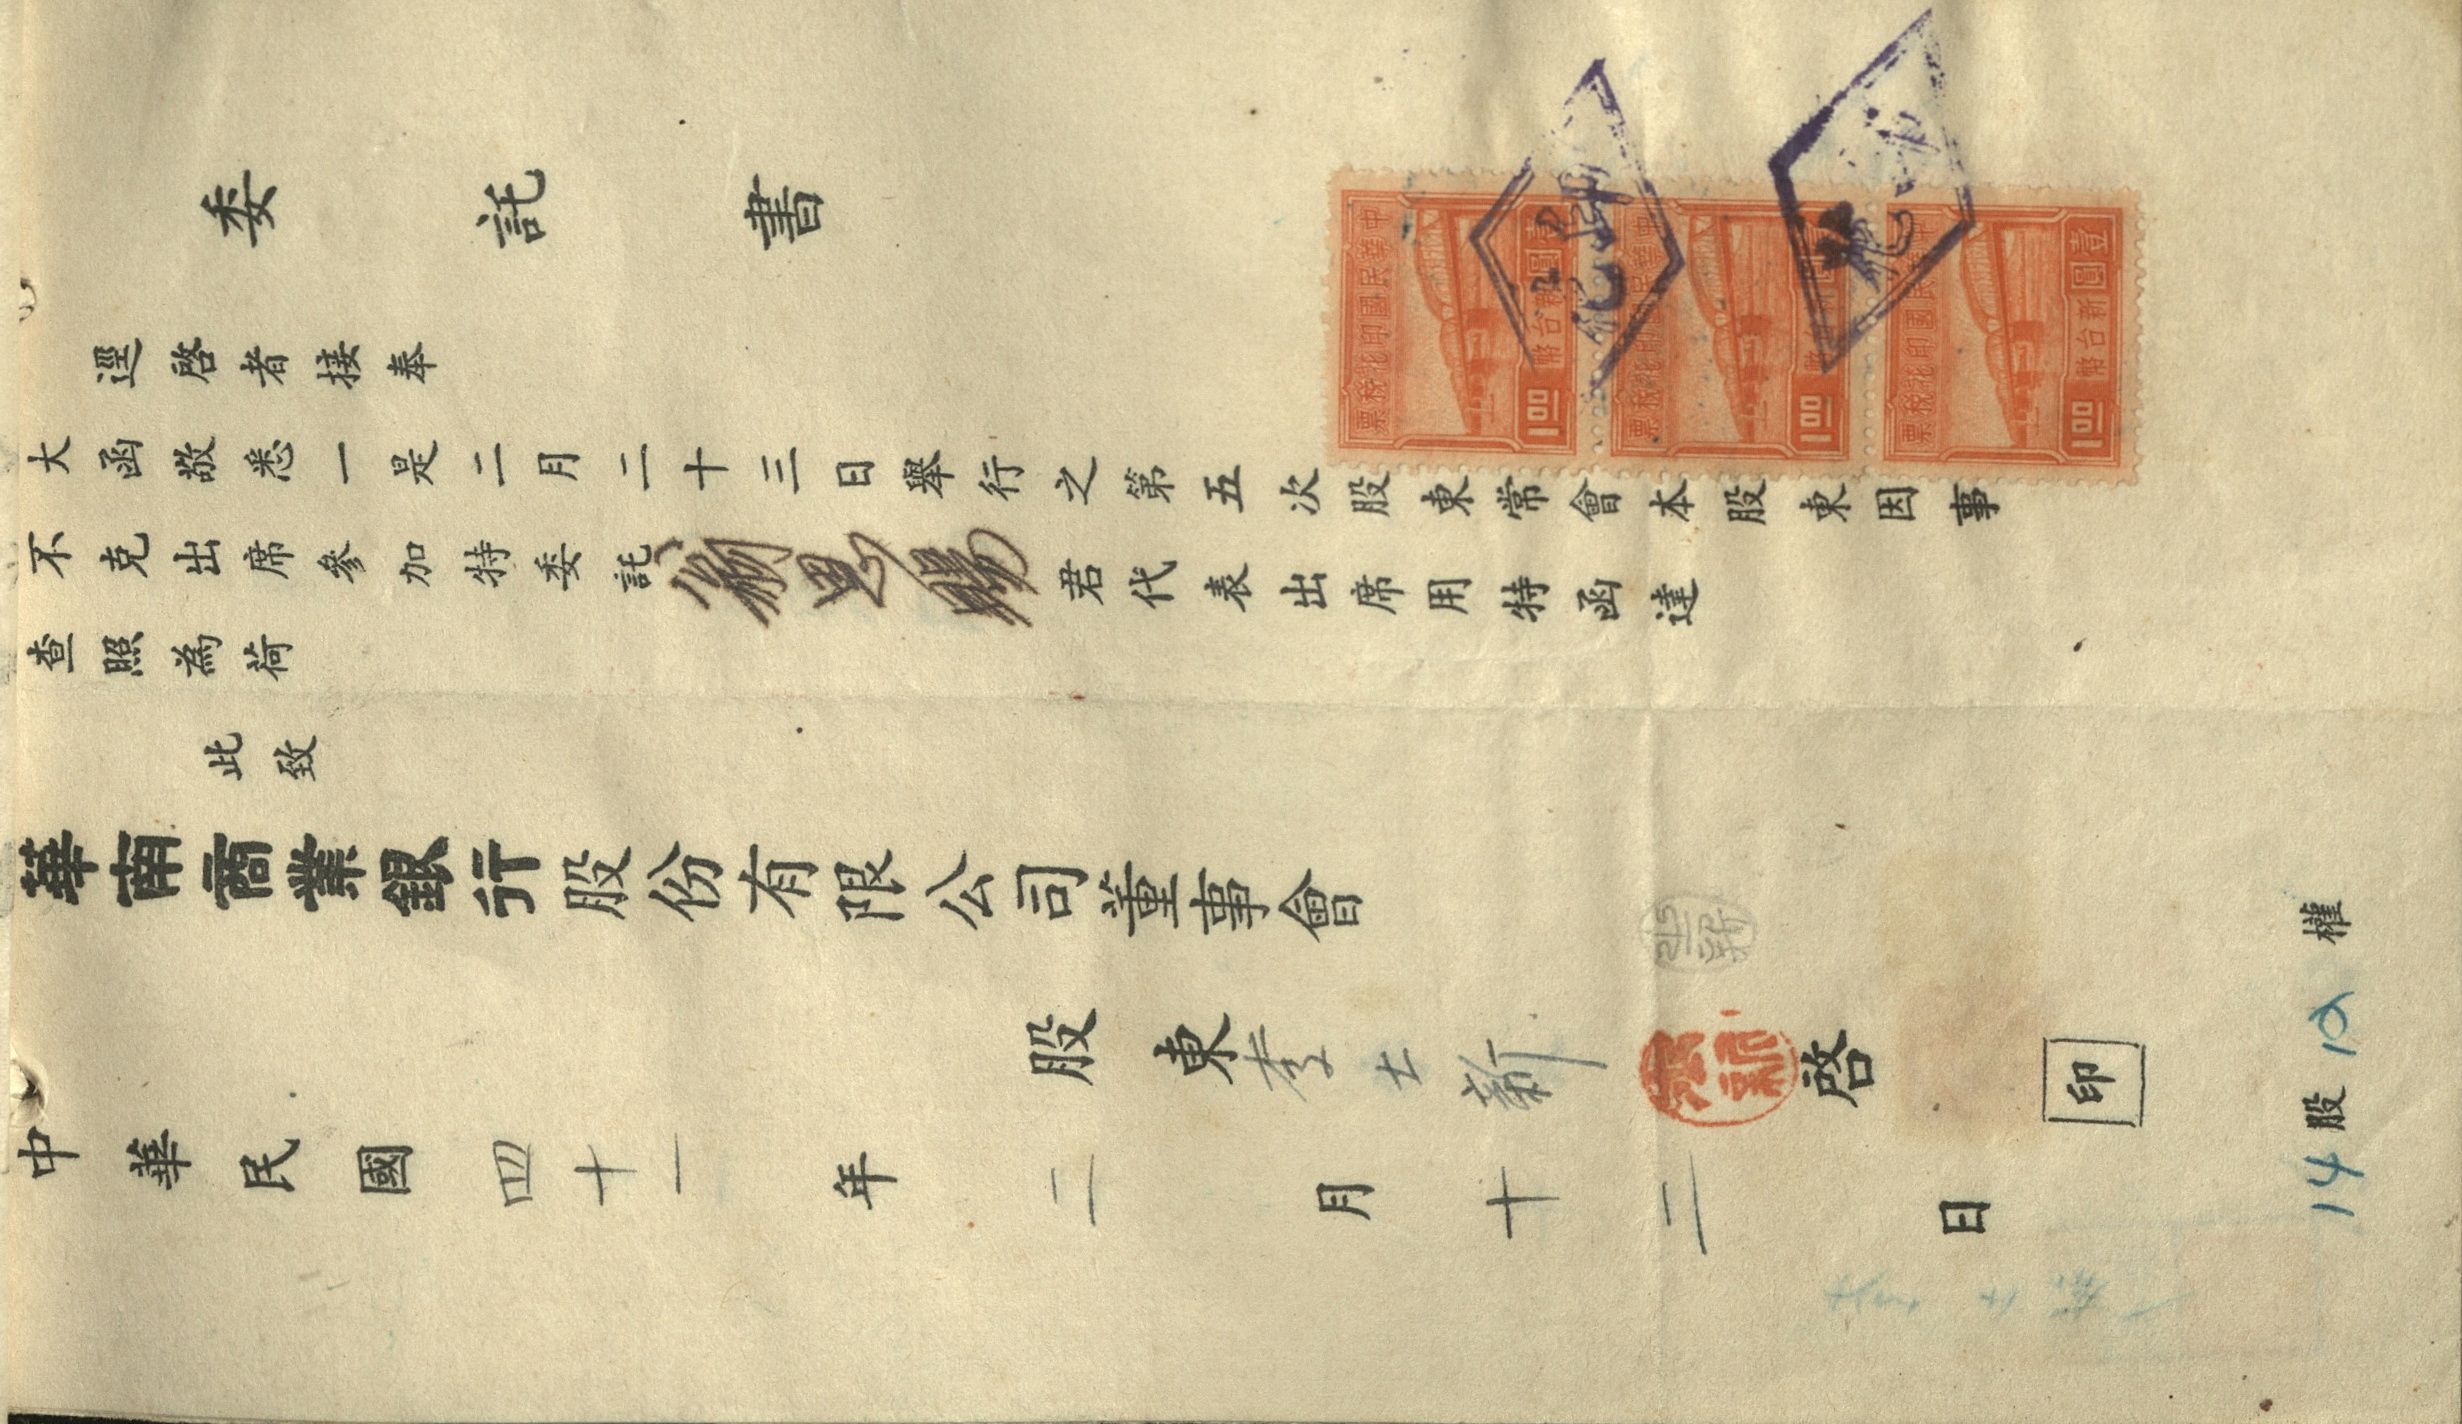 委託書
逕啓者接奉
大函敬悉一是二月二十三日舉行之第五次股東常會本股東因事
不克出席參加特委託翁思賜君代表出席用特函達
查照為荷
此致
華南商業銀行股份有限公司董事會
股東李士新啓 印
中華民國四十一年二月十二日
14股12權
中華民國印花稅票
壹圓新台幣
1.00
中華民國印花稅票
壹圓新台幣
1.00
中華民國印花稅票
壹圓新台幣
1.00